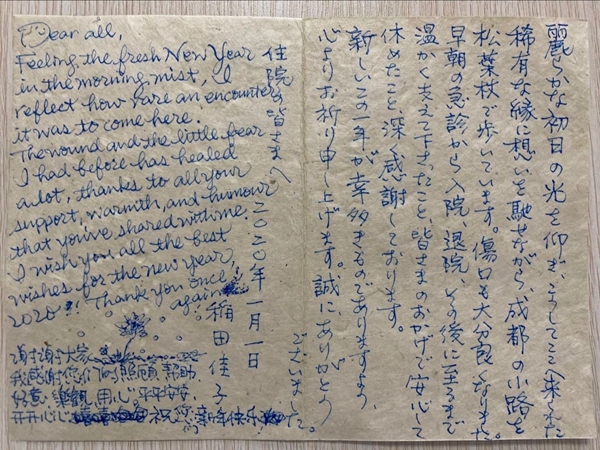 麗らかな初日の光を仰ぎ、こうしてここへ来られた
稀有な縁に想いを馳せながら、成都の小路を
松葉杖で歩いています。傷口も大分良くなりました。
早朝の急診から入院、退院、その後に至るまで
温かく支えて下さったこと、皆さまのおかげで安心して
休めたこと、深く感謝しております。
新しいこの一年が幸多きものでありますよう、
心よりお祈り申し上げます。誠にありがとう
ございました。
住院の皆さまへ
二〇二〇年一月一日
稲田佳子
Dear all,
Feeling the fresh New Year
in the morning mist, I
reflect how rare an encounter
it was to come here.
The wound and the little fear
I had before has healed
a lot, thanks to all your
support, warmth, and humour
that you've shared with me.
I wish you all the best
wishes for the new year,
2020!! Thank you once
again!
谢谢大家
我感谢您们的照顾, 帮助
好意, 樂觀, 用心。平平安安
开开心心 祝您们新年快乐